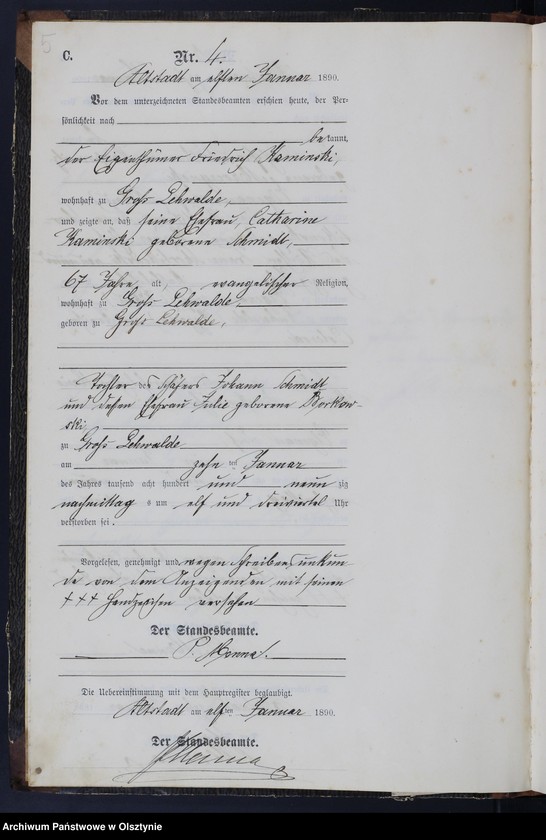 5
C.
Nr. 4.
Altstadt am elften Januar 1890.
Vor dem unterzeichneten Standesbeamten erschien heute, der Per-
sönlichkeit nach
bekannt,
der Eigenthümer Friedrich Kaminski,
wohnhaft zu Groß Lehwalde,
und zeigte an, daß seine Ehefrau, Catharine
Kaminski geborene Schmidt,
67 Jahre alt, evangelischer Religion,
wohnhaft zu Groß Lehwalde,
geboren zu Groß Lehwalde,
Tochter des Schäfers Johann Schmidt
und dessen Ehefrau Julie geborene Borkow-
ski,
zu Groß Lehwalde
am zehnten Januar
des Jahres tausend acht hundert und neunzig
nachmittags um elf und dreiviertel Uhr
verstorben sei.
Vorgelesen, genehmigt und wegen Schreibensunkun
de von dem Anzeigenden mit seinen
+++ Handzeichen versehen
Der Standesbeamte.
P. Monna.
Die Uebereinstimmung mit dem Hauptregister beglaubigt.
Altstadt am elften Januar 1890.
Der Standesbeamte.
Archiwum Państwowe w Olsztynie